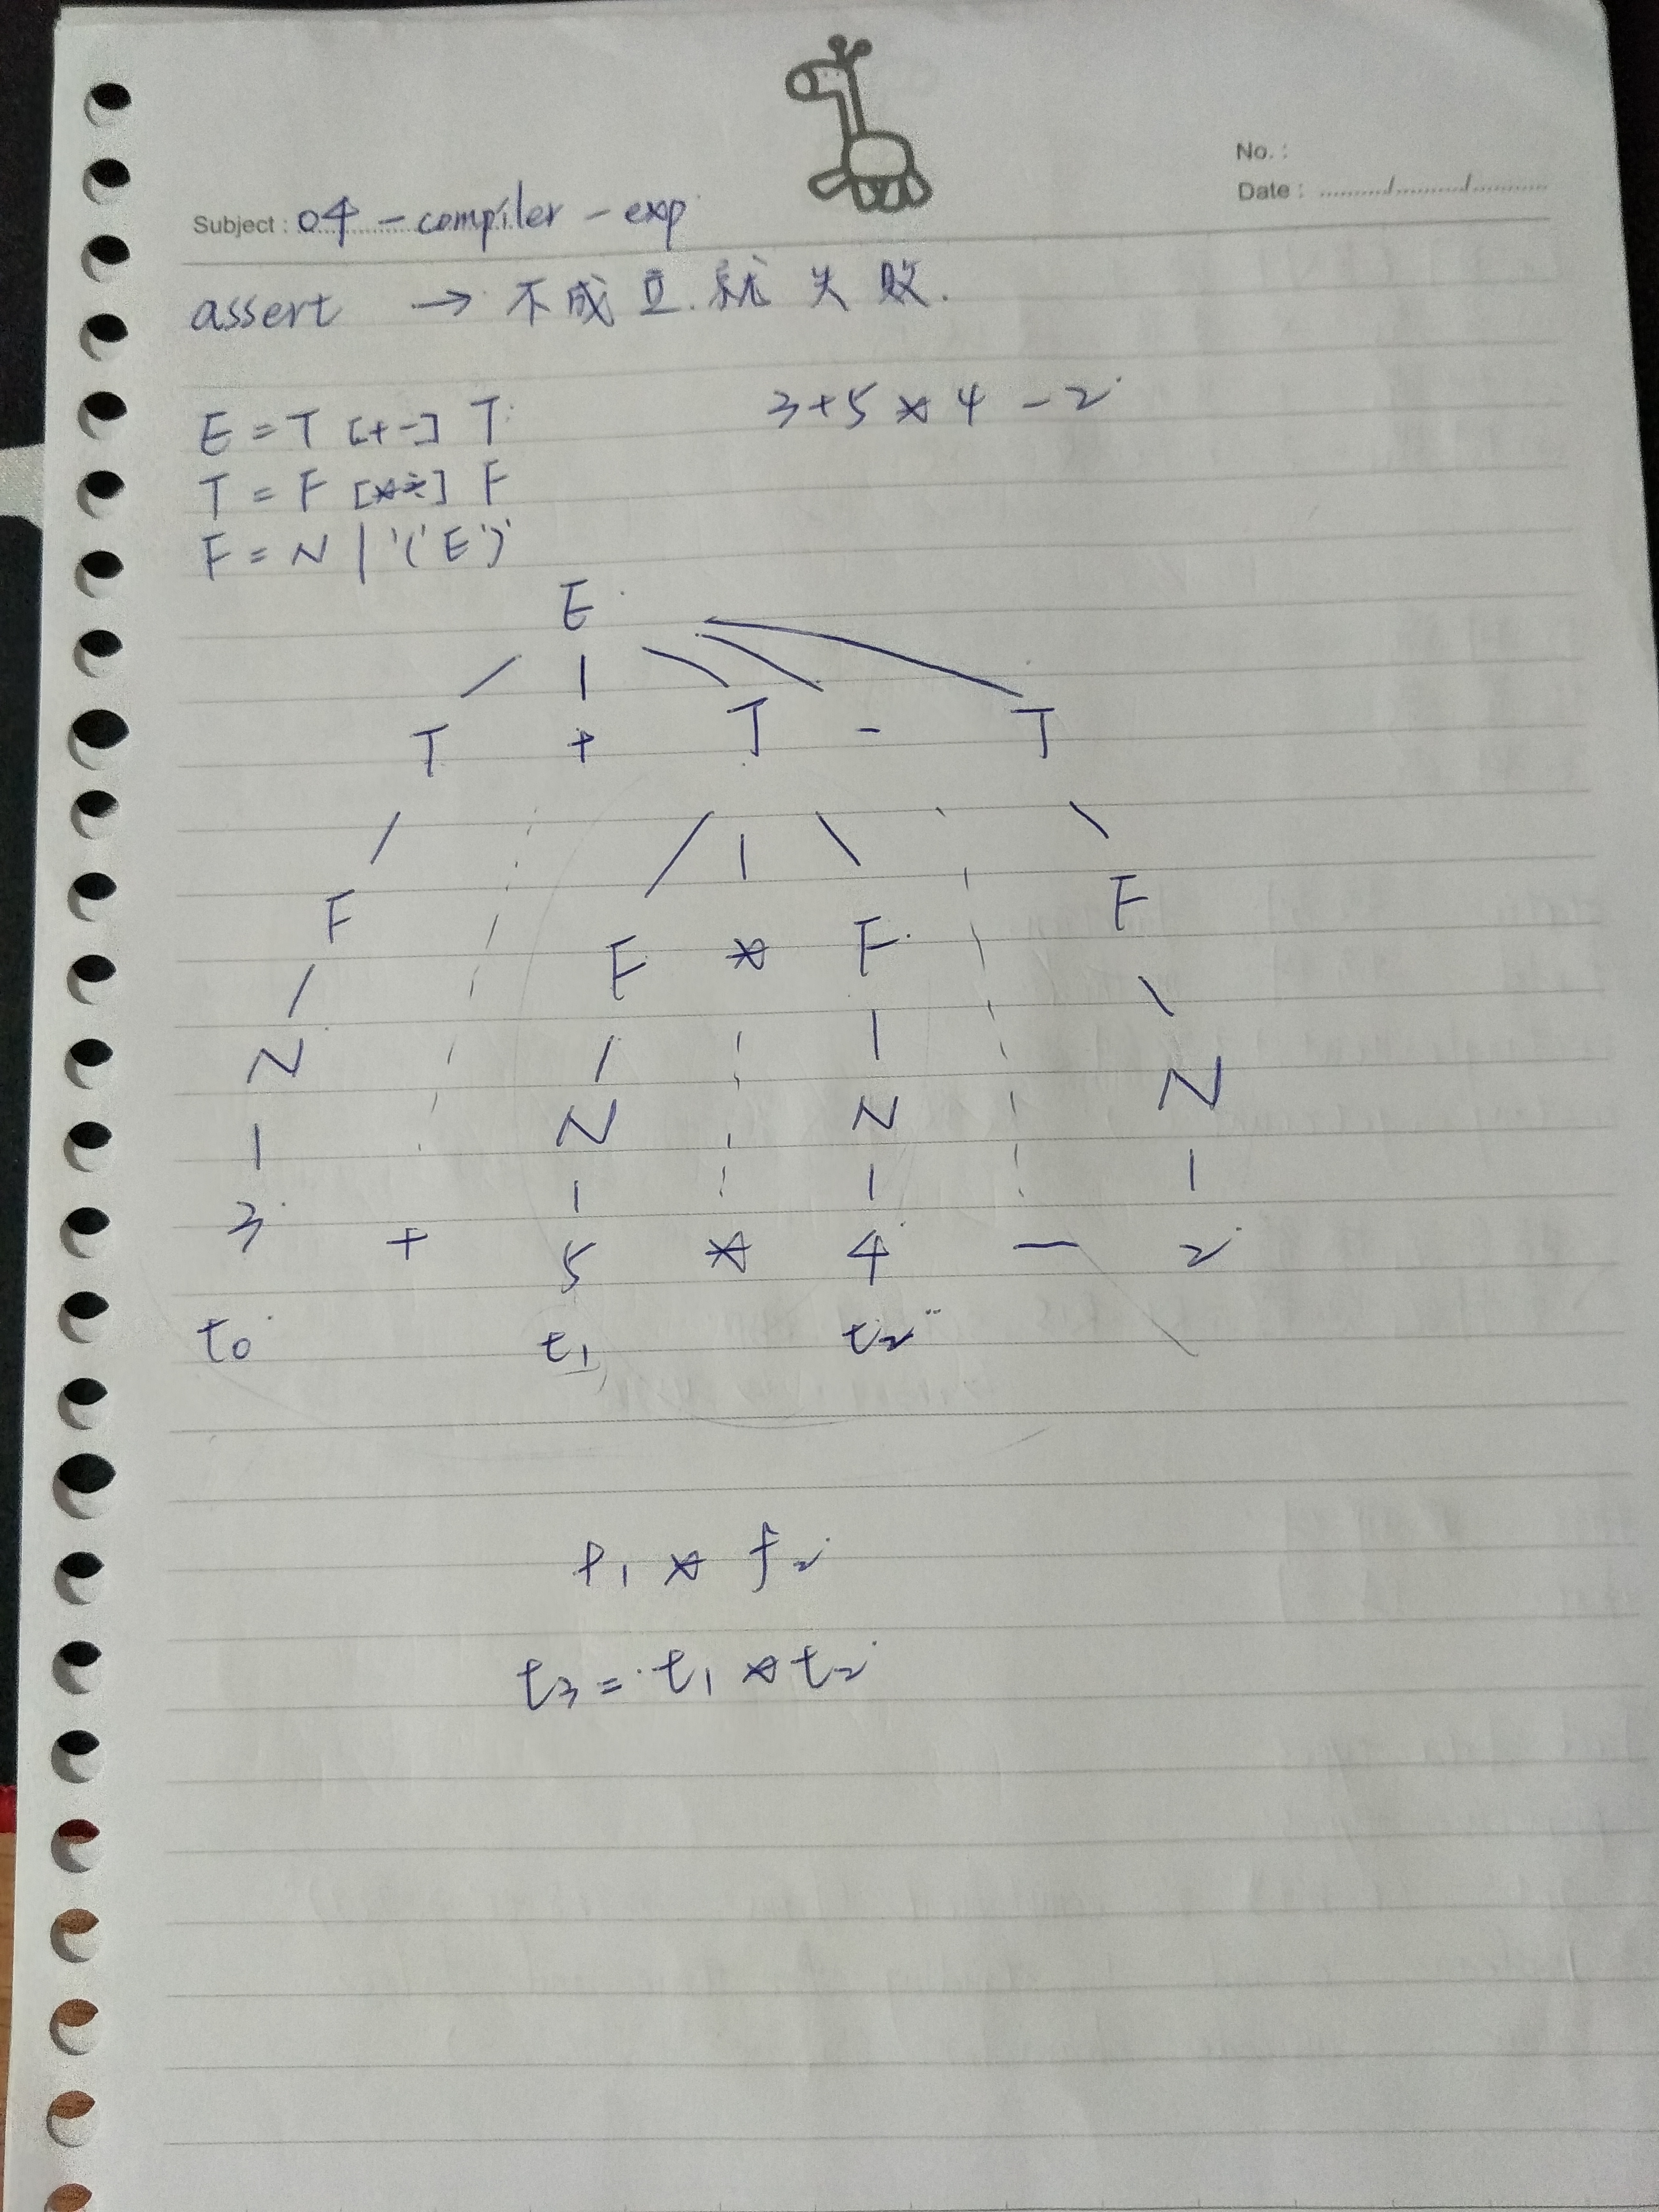 No. :
Date : ........../........../...........
Subject : 04 - compiler - exp
assert → 不成立就失敗.
E = T [+-] T
3+5*4-2
T = F [*÷] F
F = N | '(' E ')'
E
T + T - T
F F * F F
N N N N
3 + 5 * 4 - 2
t0 t1 t2
* f2
t3 = t1 * t2